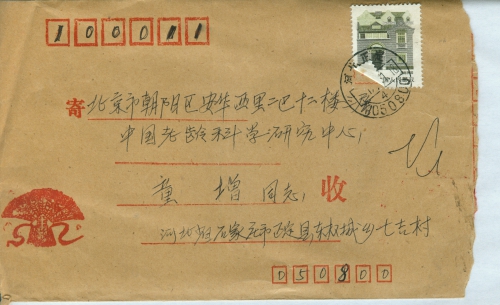 100011
寄 北京市朝阳区安华西里二区十二楼
中国老龄科学研究中心;
董 增 同志; 收
河北省石家庄市正定县东权城乡七吉村
050800